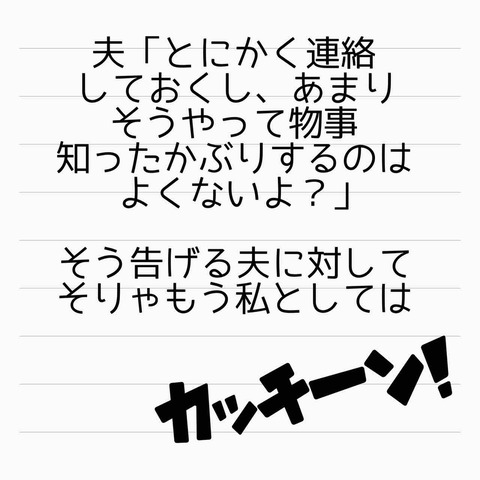 夫「とにかく連絡
しておくし、あまり
そうやって物事
知ったかぶりするのは
よくないよ？」
そう告げる夫に対して
そりゃもう私としては
カッチーン!